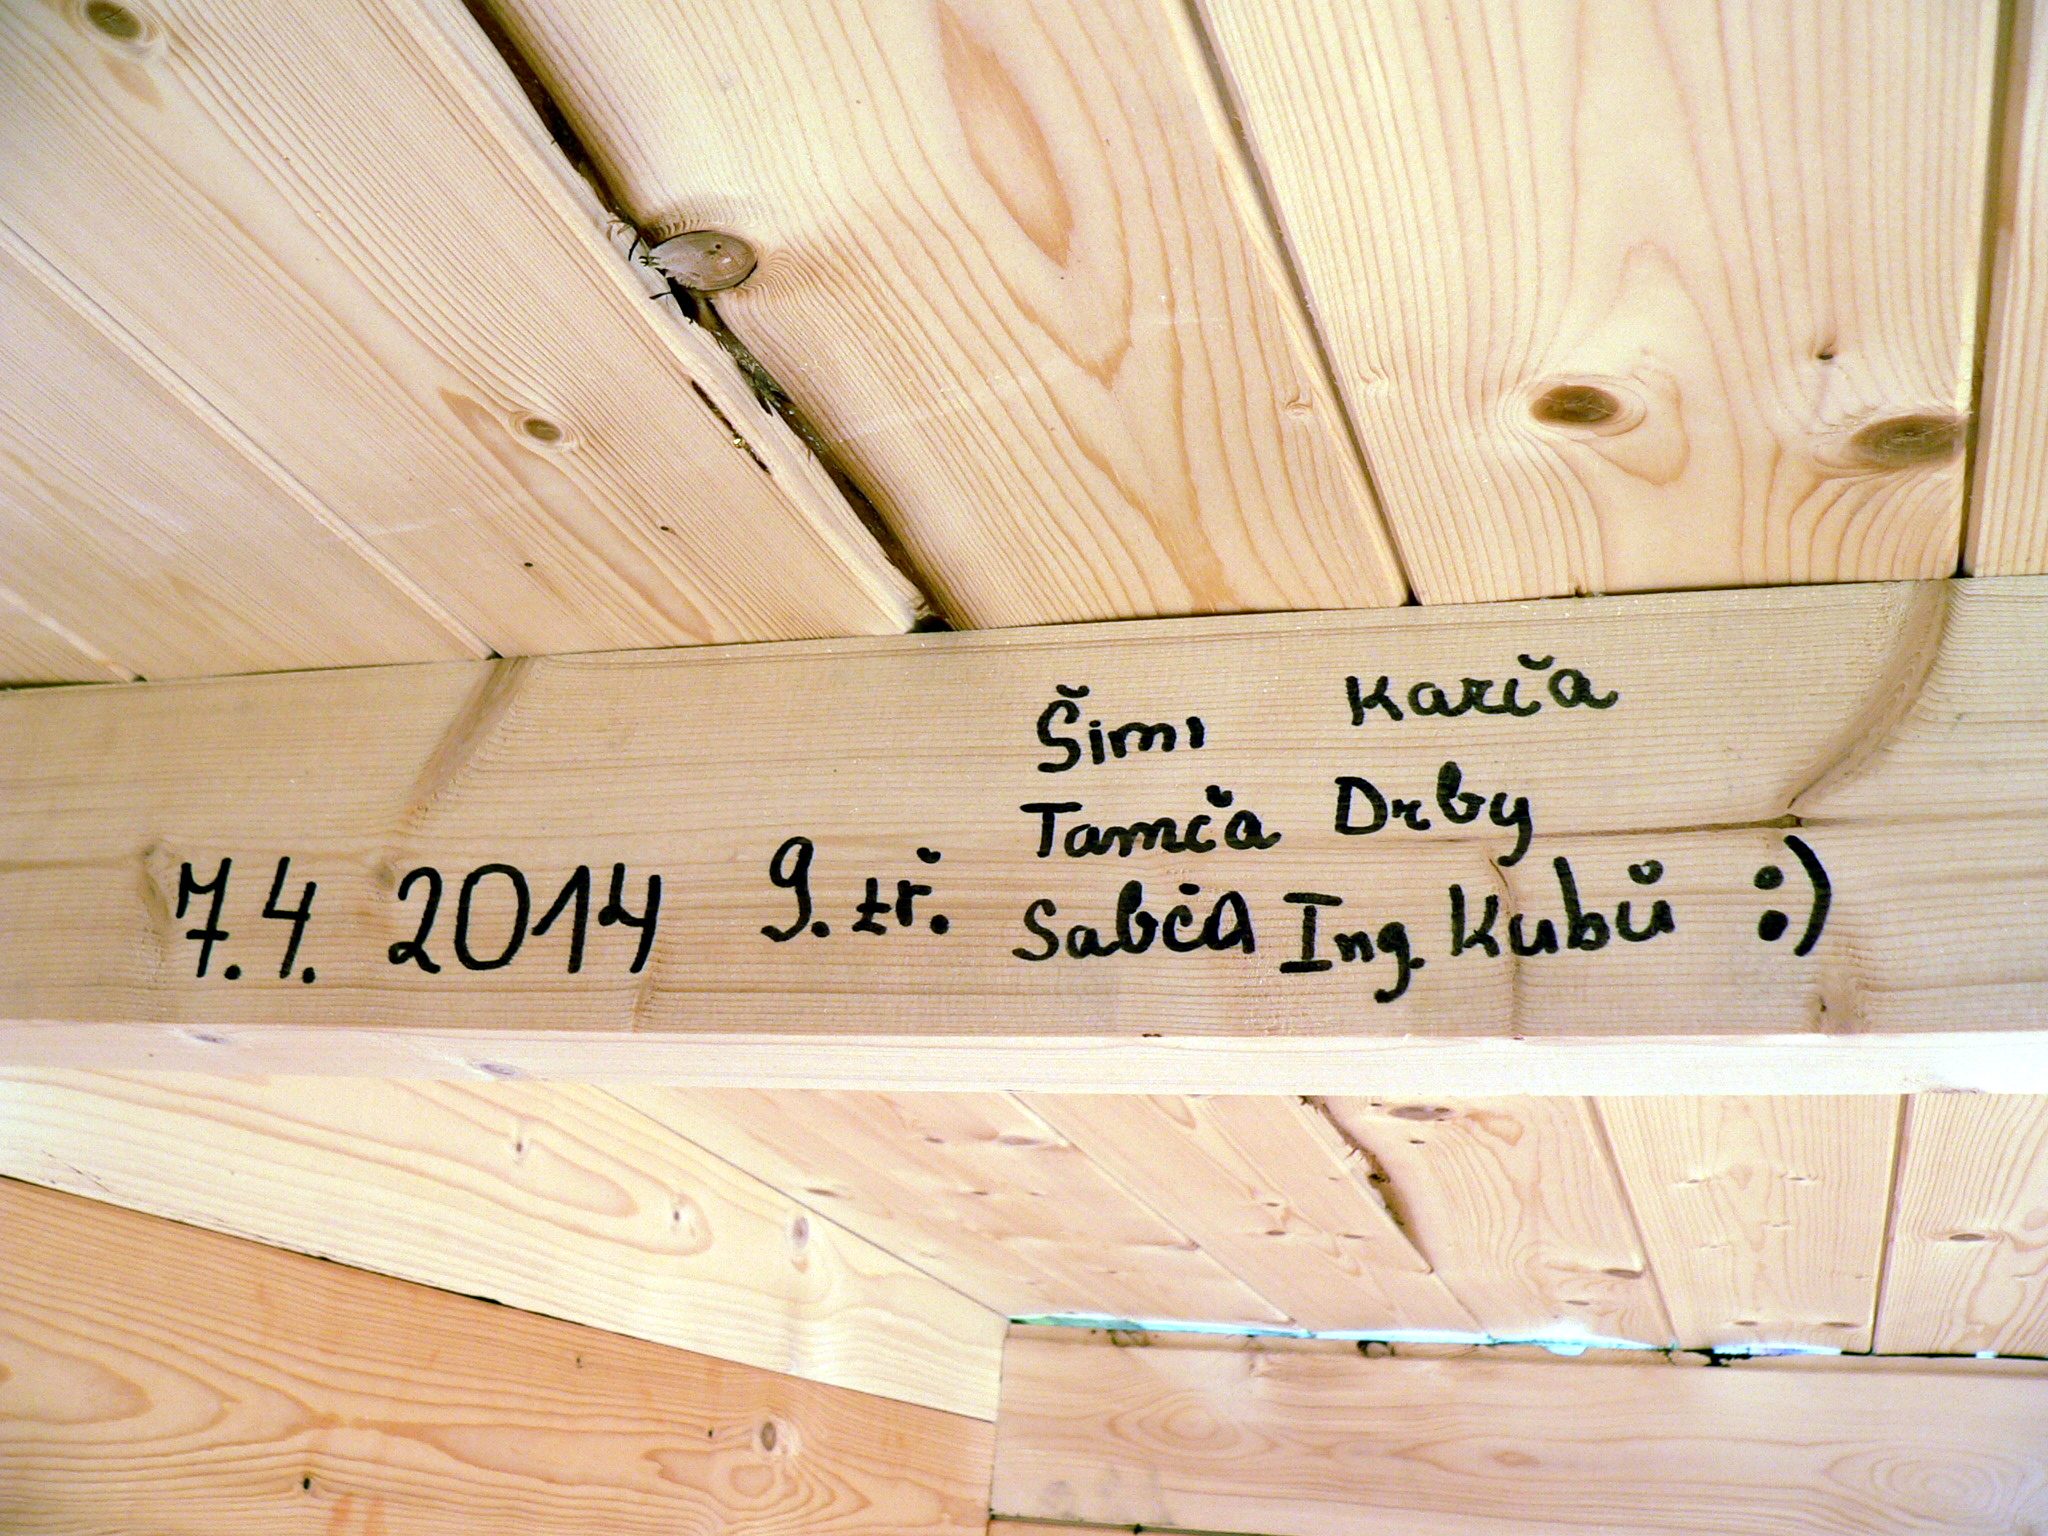 Šimi Karča
Tamča Drby
7.4. 2014 9. tř. Sabča Ing. Kubů :)